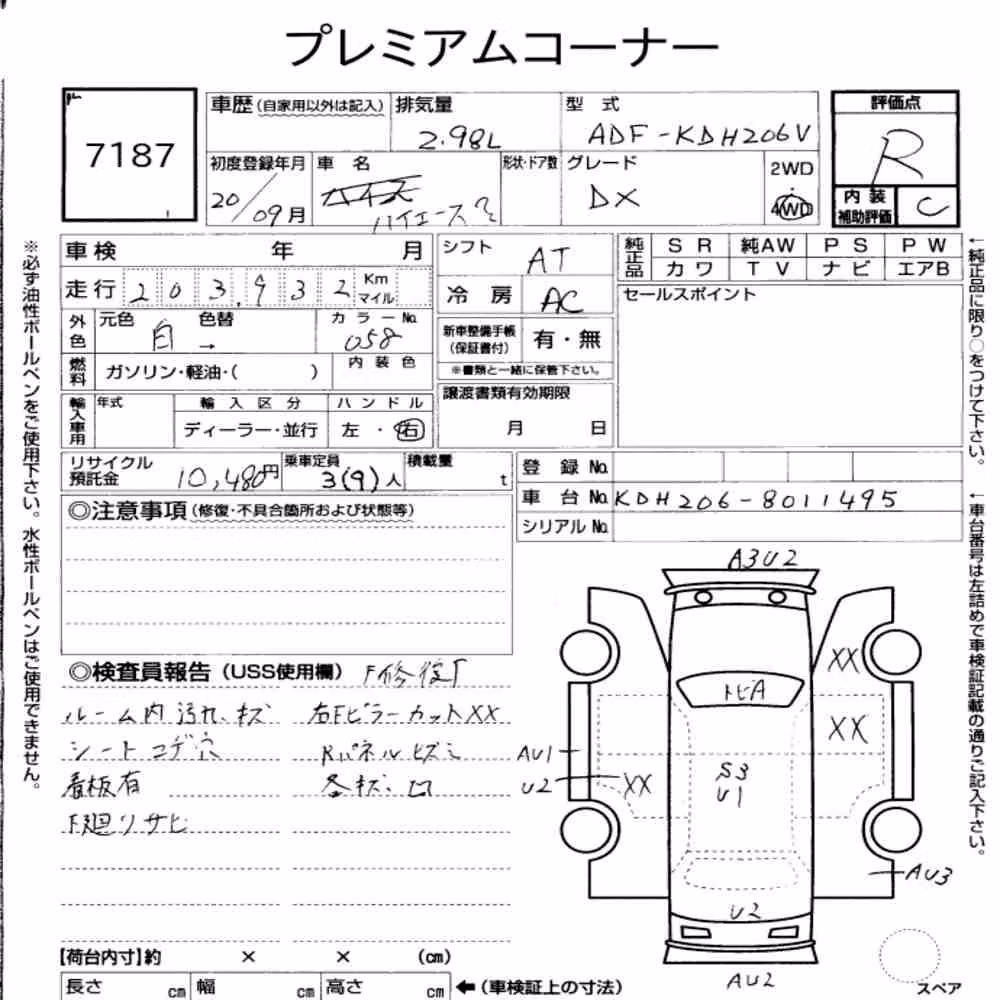 プレミアムコーナー
7187
車歴(自家用以外は記入)
排気量
2.98L
型 式
ADF-KDH206V
評価点
R
初度登録年月
20/09月
車 名
ハイエースバン
形状・ドア数
グレード
DX
2WD
4WD
内 装
補助評価
C
※必ず油性ボールペンをご使用下さい。水性ボールペンはご使用できません。
車検 年 月
走行 203,932 Km マイル
外色
元色 白
色替 →
カラーNo.
058
燃料
ガソリン・軽油・( )
内装色
輸入車用
年式
輸入区分
ディーラー・並行
ハンドル
左・右
シフト
AT
冷 房
AC
新車整備手帳
(保証書付)
有・無
※書類と一緒に保管下さい。
譲渡書類有効期限
月 日
純正品
SR 純AW PS PW
カワ TV ナビ エアB
セールスポイント
←純正品に限り○をつけて下さい。
リサイクル
預託金
10,480円
乗車定員
3(9)人
積載量
t
登 録 No.
車 台 No. KDH206-8011495
シリアル No.
←車台番号は左詰めで車検証記載の通りご記入下さい。
◎注意事項(修復・不具合箇所および状態等)
◎検査員報告(USS使用欄)「修復」
ルーム内汚れ、キズ
シートコゲ穴
看板有
下廻りサビ
右Fピラーカット XX
Rパネルヒズミ
各キズ、凹
A3U2
XX
トビA
XX
AU1
U2
XX
S3
U1
AU3
U2
AU2
スペア
【荷台内寸】約 × × (cm)
長さ cm 幅 cm 高さ cm ←(車検証上の寸法)